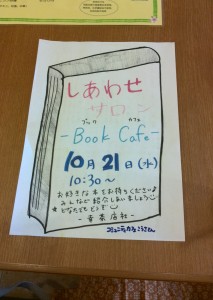 しあわせ
サロン
ブック カフェ
-Book Cafe-
10月21日(水)
10:30～
お好きな本をお持ちください♪
みんなで紹介しあいましょう
★どなたでもどうぞ